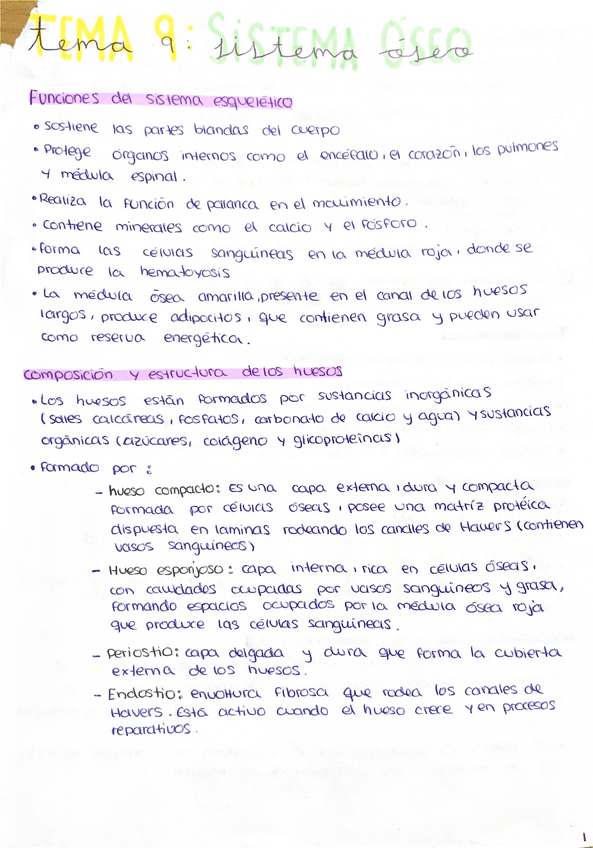 TEMA 9: SISTEMA ÓSEO
tema 9: sistema óseo
Funciones del sistema esquelético
• Sostiene las partes blandas del cuerpo
• Protege órganos internos como el encéfalo, el corazón, los pulmones
y médula espinal.
• Realiza la función de palanca en el movimiento.
• Contiene minerales como el calcio y el fósforo.
• Forma las células sanguíneas en la médula roja, donde se
produce la hematoyosis
• La médula ósea amarilla, presente en el canal de los huesos
largos, produce adipocitos, que contienen grasa y pueden usar
como reserva energética.
composición y estructura de los huesos
• Los huesos están formados por sustancias inorgánicas
(sales calcáreas, fosfatos, carbonato de calcio y agua) y sustancias
orgánicas (azúcares, colágeno y glicoproteínas)
• Formado por:
- hueso compacto: Es una capa externa, dura y compacta
formada por células óseas, posee una matríz protéica
dispuesta en laminas rodeando los canales de Havers (contienen
vasos sanguíneos)
- Hueso esponjoso: capa interna, rica en células óseas,
con cavidades ocupadas por vasos sanguíneos y grasa,
formando espacios ocupados por la médula ósea roja
que produce las células sanguíneas.
- periostio: capa delgada y dura que forma la cubierta
externa de los huesos.
- Endostio: envoltura fibrosa que rodea los canales de
Havers. Está activo cuando el hueso crece y en procesos
reparativos.
1